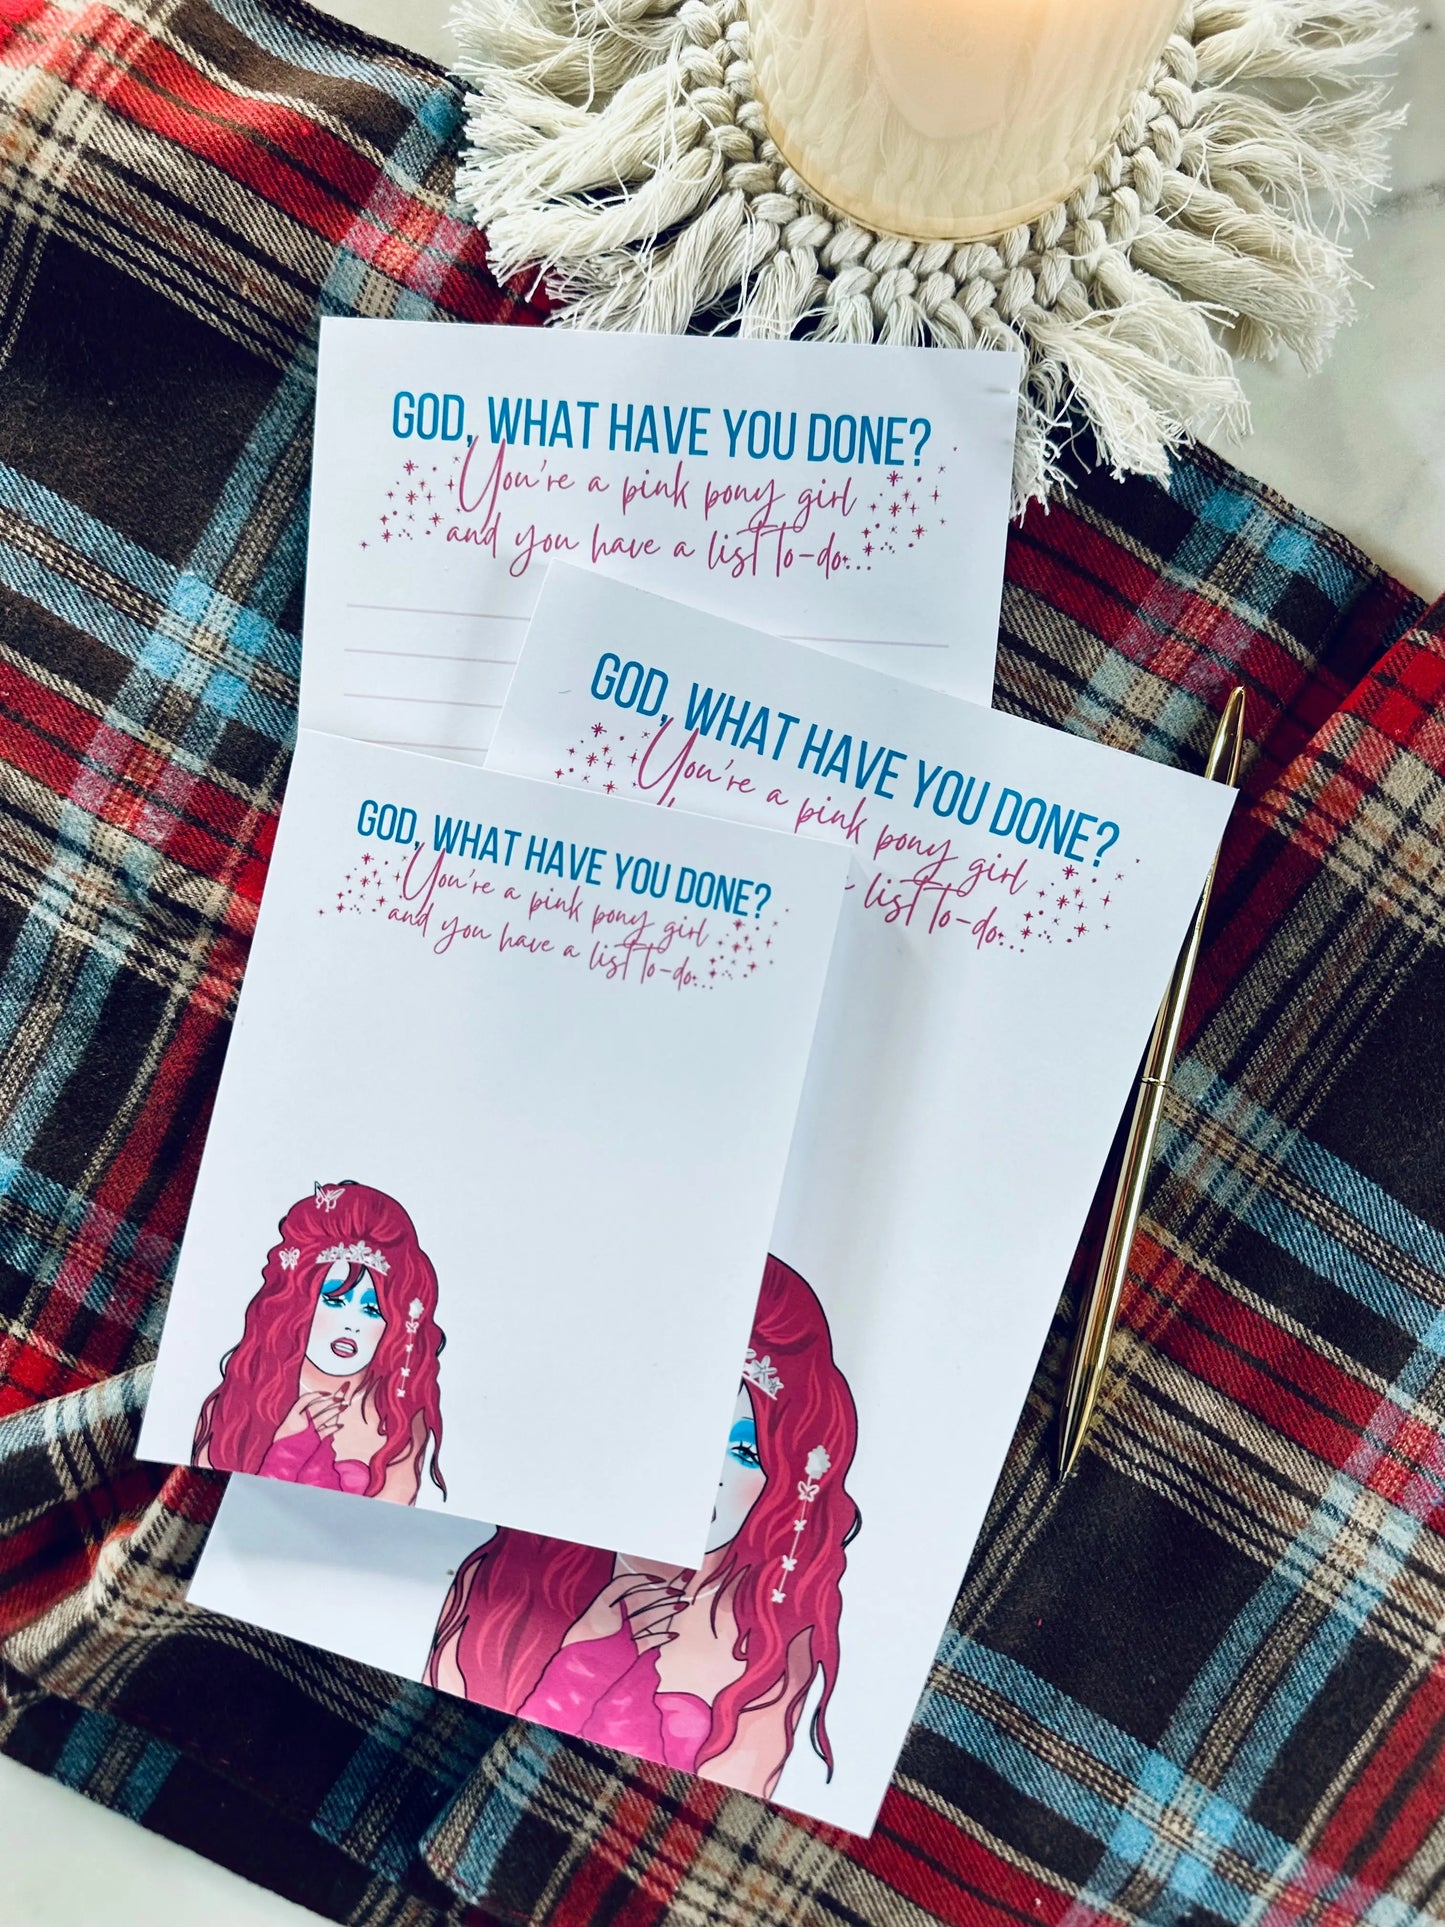 GOD, WHAT HAVE YOU DONE?
You're a pink pony girl
and you have a list to-do...
GOD, WHAT HAVE YOU DONE?
You're a pink pony girl
list to-do...
GOD, WHAT HAVE YOU DONE?
You're a pink pony girl
and you have a list to-do...